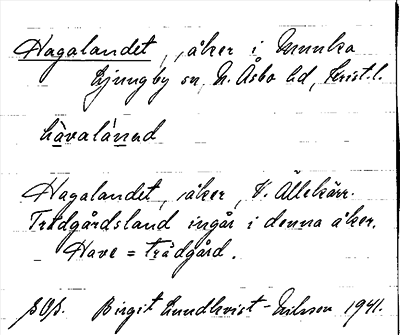 Hagalandet, åker i Munka
Ljungby sn, N. Åsbo hd, Krist. l.
hàvalánad
Hagalandet, åker, V. Ällekärr.
Trädgårdsland ingår i denna åker.
Have = trädgård.
Birgit Lundkvist-Nilsson 1941.